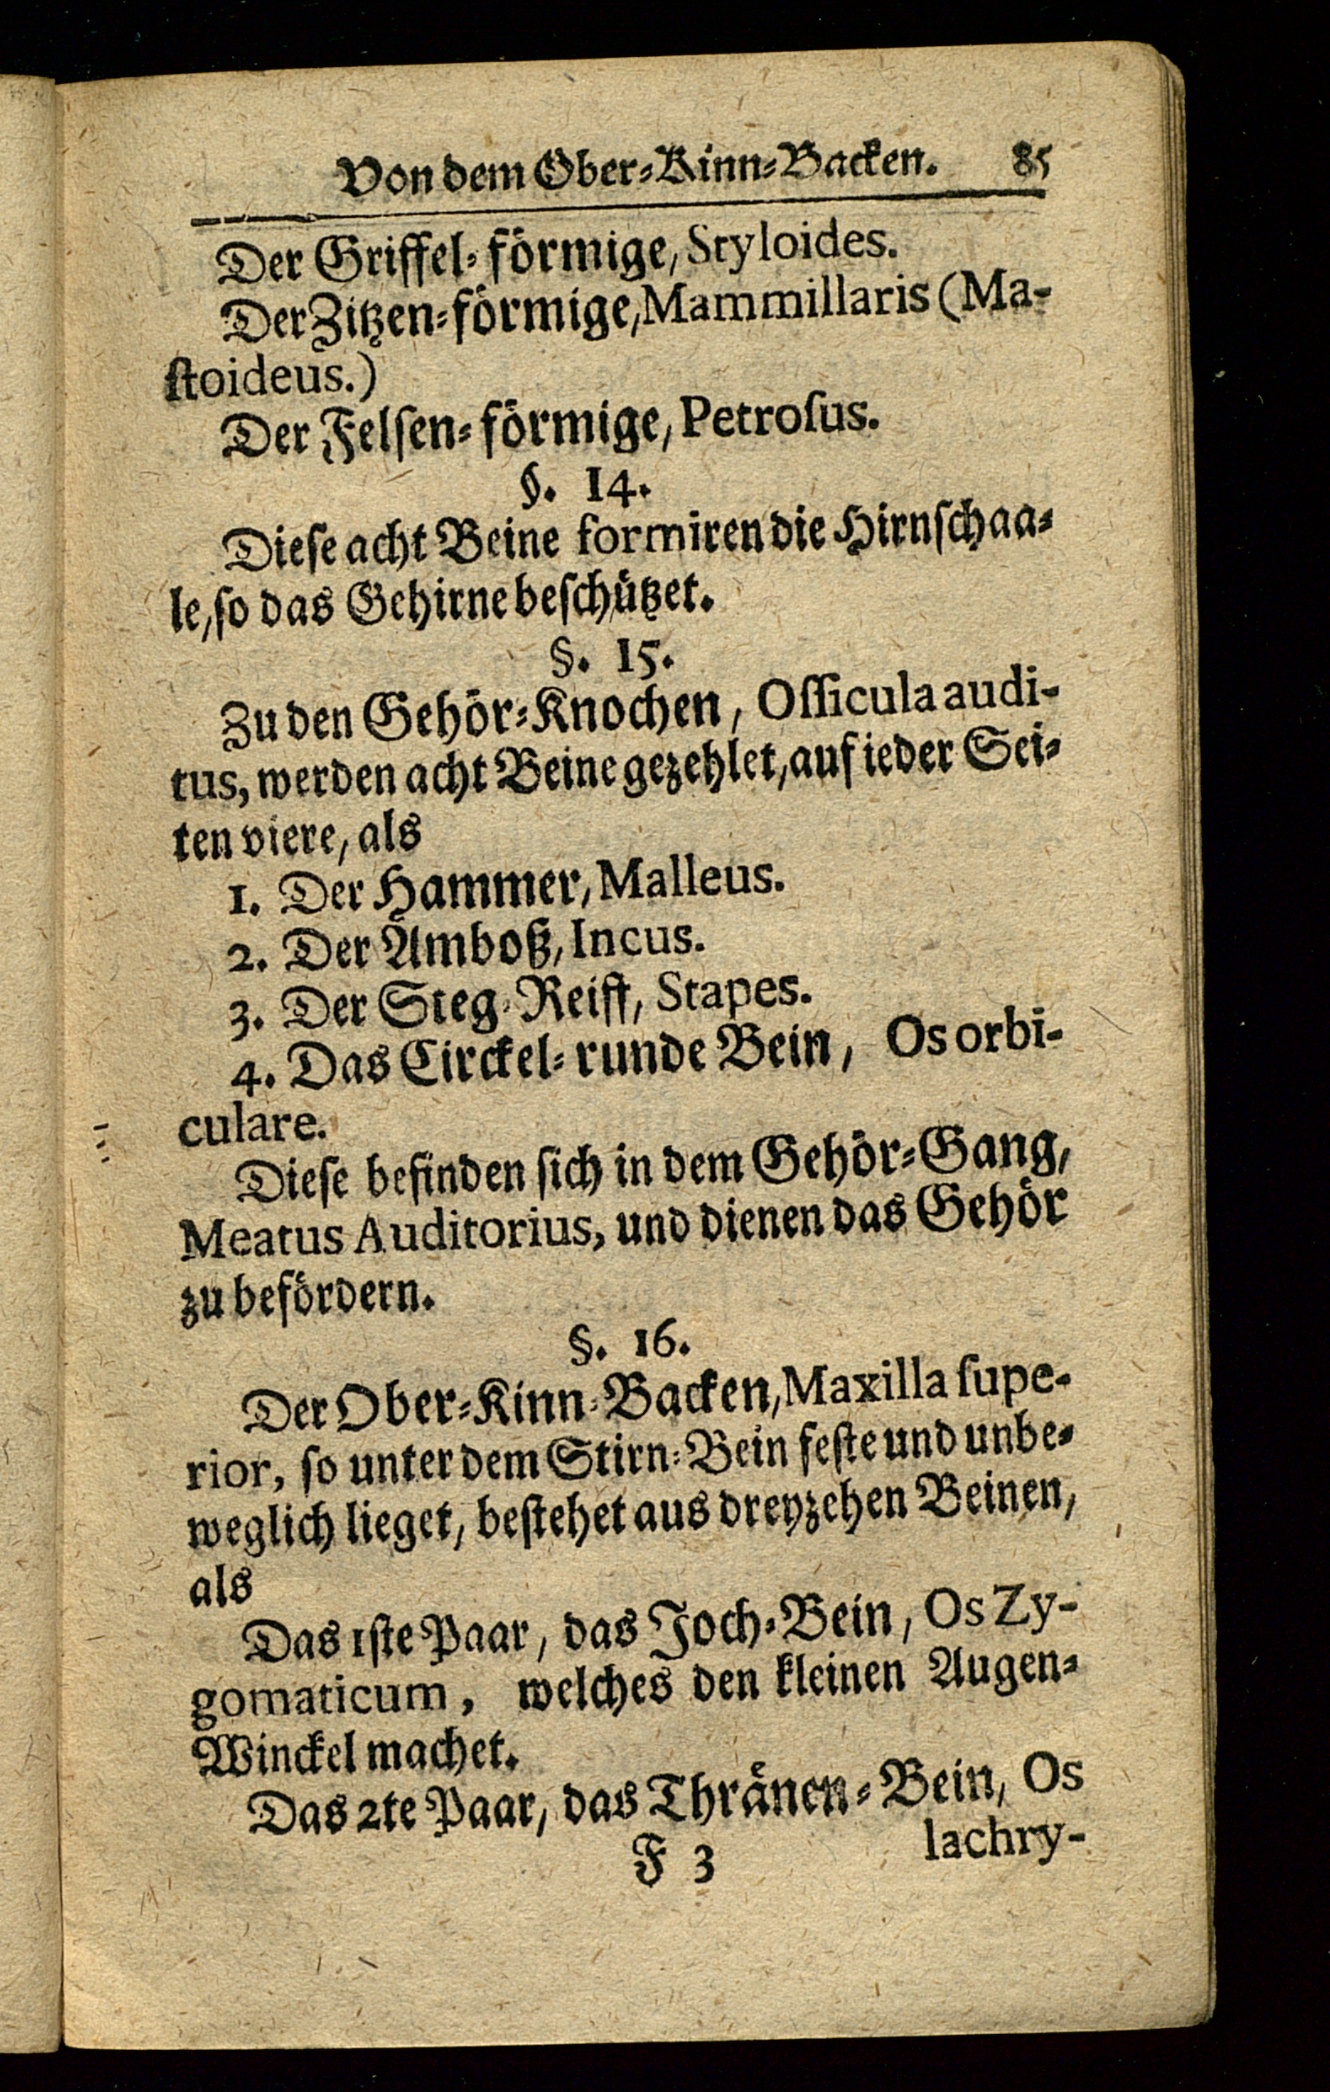 Von dem Ober-Kinn-Backen. 85
Der Griffel-förmige, Styloides.
Der Zitzen-förmige, Mammillaris (Ma-
ſtoideus.)
Der Felſen-förmige, Petroſus.
§. 14.
Dieſe acht Beine formiren die Hirnſchaa-
le, ſo das Gehirne beſchützet.
§. 15.
Zu den Gehör-Knochen, Oſſicula audi-
tus, werden acht Beine gezehlet, auf ieder Sei-
ten viere, als
1. Der Hammer, Malleus.
2. Der Amboß, Incus.
3. Der Steg-Reiff, Stapes.
4. Das Circkel-runde Bein, Os orbi-
culare.
Dieſe befinden ſich in dem Gehör-Gang,
Meatus Auditorius, und dienen das Gehör
zu befördern.
§. 16.
Der Ober-Kinn-Backen, Maxilla ſupe-
rior, ſo unter dem Stirn-Bein feſte und unbe-
weglich lieget, beſtehet aus dreyzehen Beinen,
als
Das 1ſte Paar, das Joch-Bein, Os Zy-
gomaticum, welches den kleinen Augen-
Winckel machet.
Das 2te Paar, das Thränen-Bein, Os
F 3 lachry-